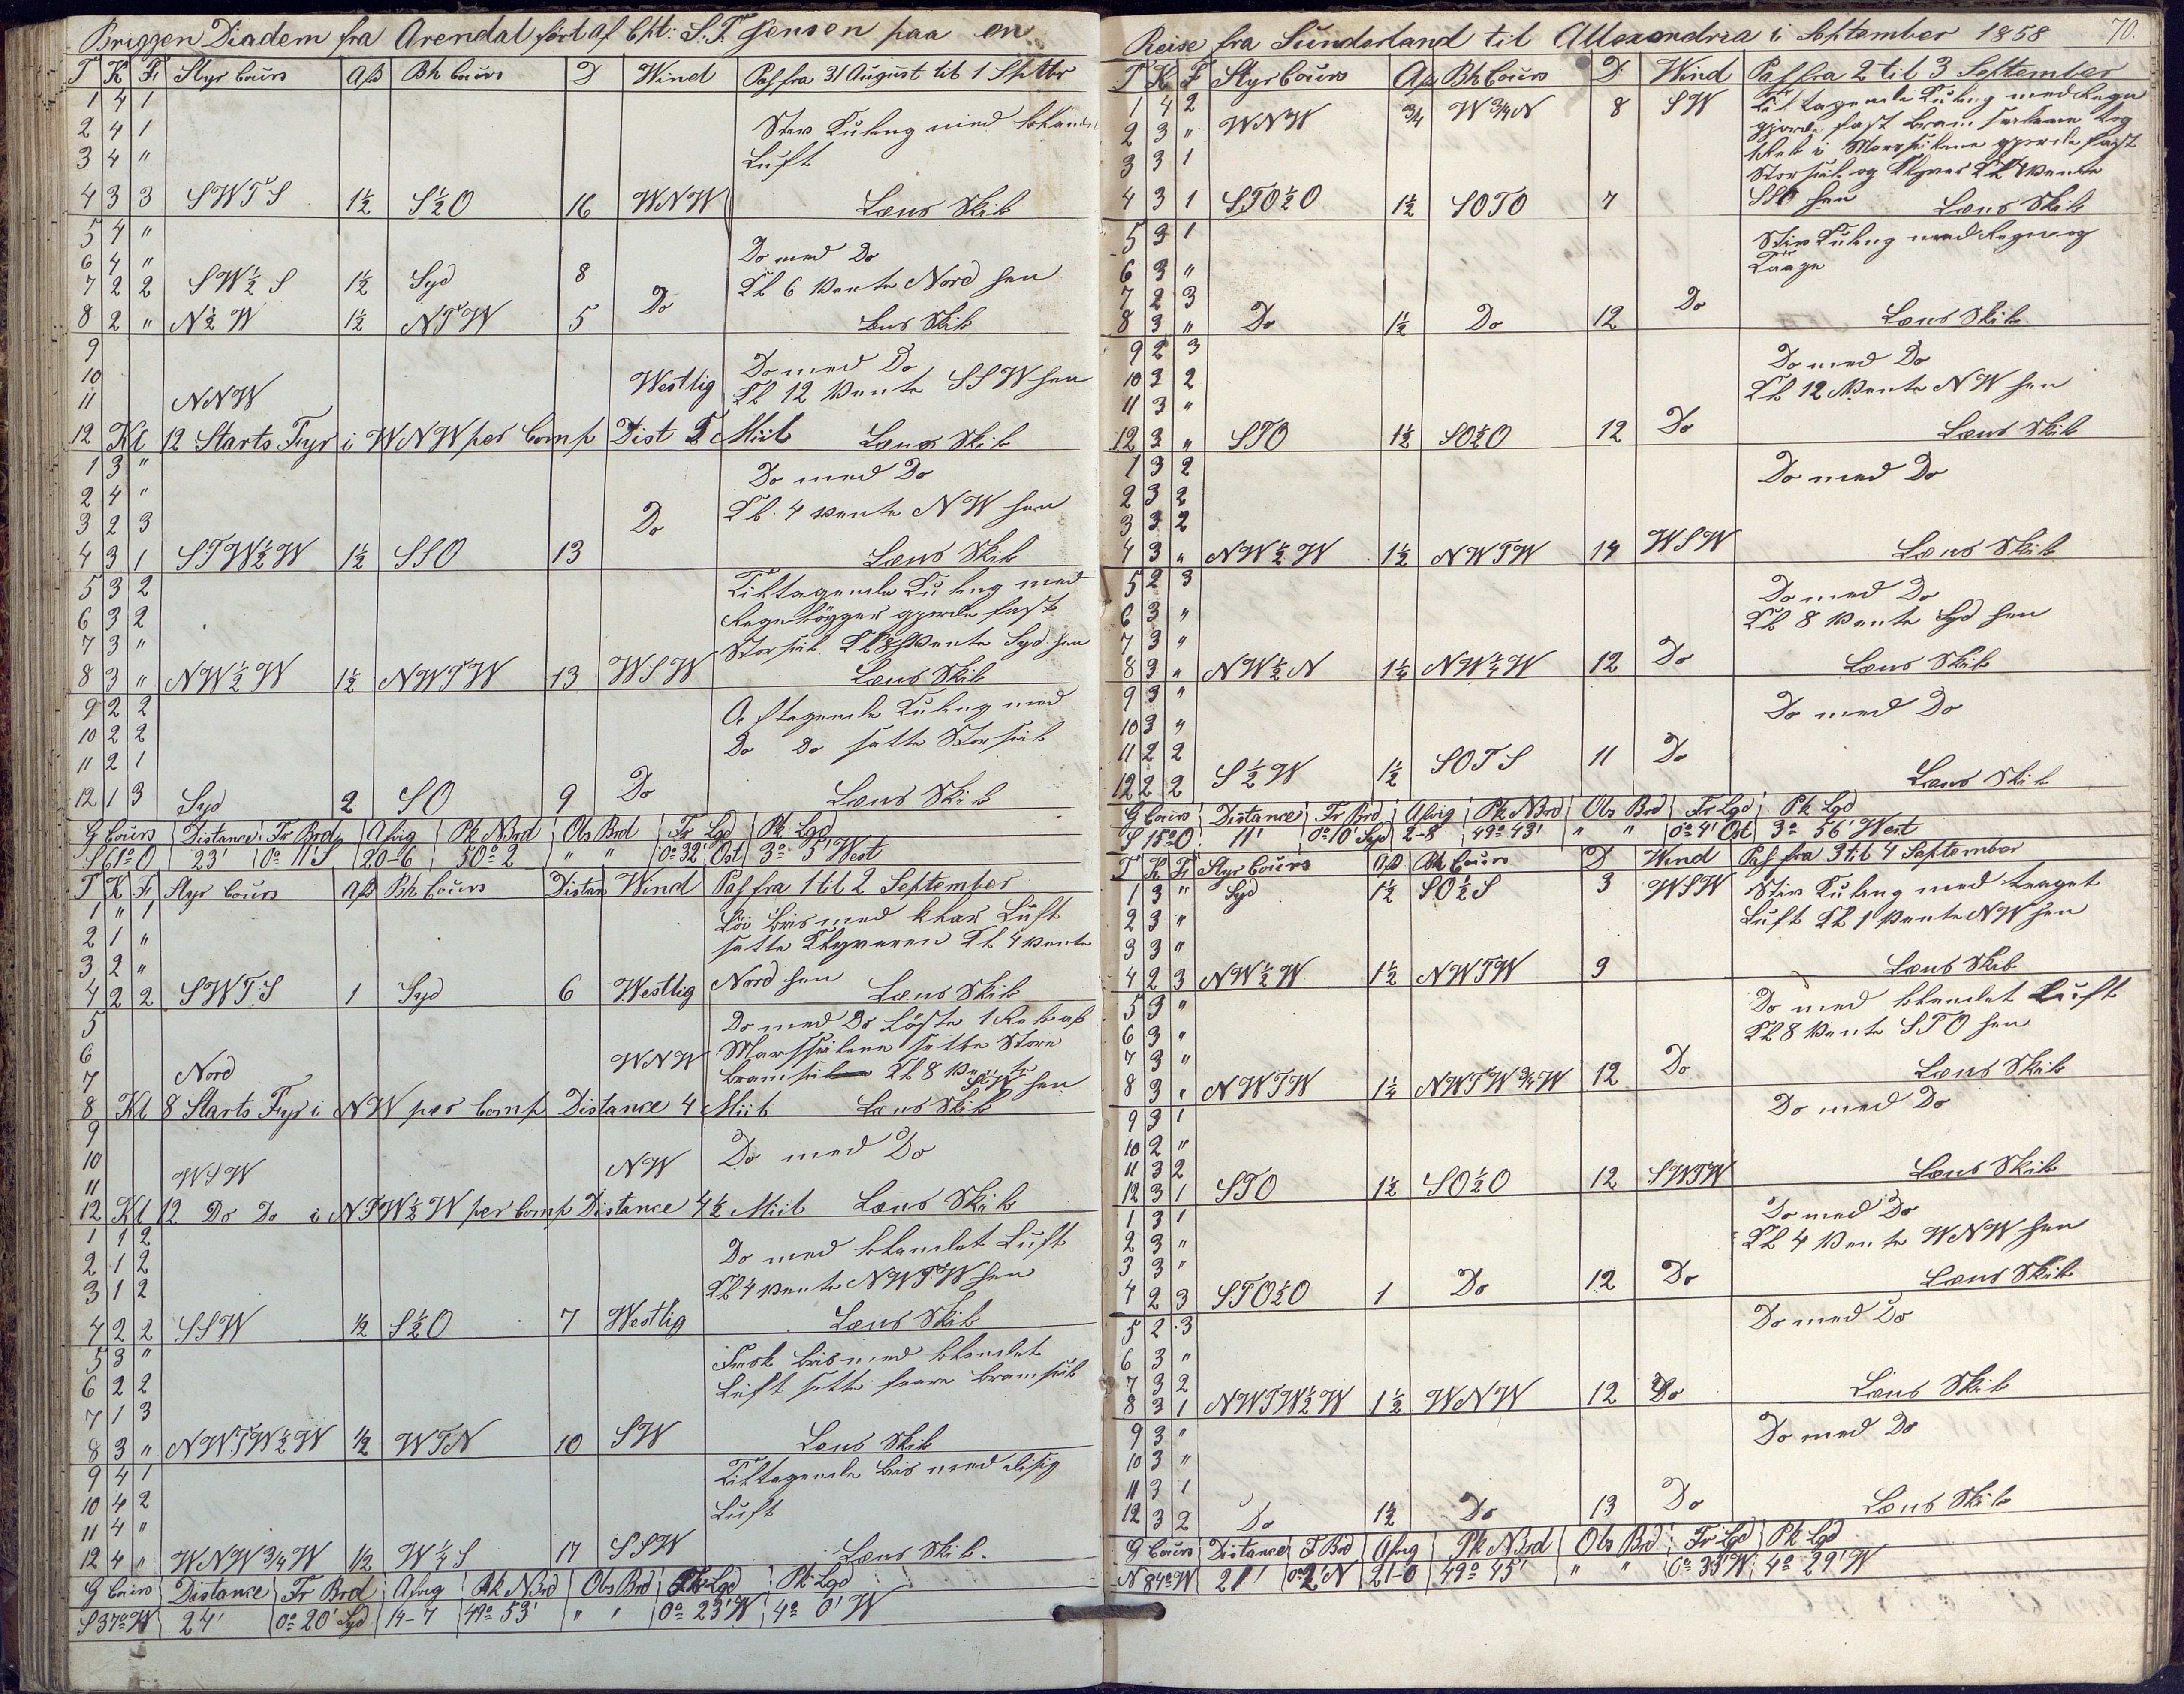 Briggen Diadem fra Arendal ført af Cpt: S. T. Jensen paa en
T K F Styr Cours Afd Bh Cours D Wind Pas fra 31 August til 1 Septbr
1 4 1
2 4 1 Stiv Kuling med blandet
3 4 " Luft
4 3 3 SWTS 1½ S½O 16 WNW Læns Skib
5 4 "
6 4 " Do med Do
7 2 2 SW½S 1½ Syd 8 Kl 6 Vente Nord hen
8 2 " N½W 1½ NTW 5 Do Læns Skib
9 Do med Do
10 Westlig Kl 12 Vente SSW hen
11 NNW
12 Kl 12 Starts Fyr i WNW per Comp Dist 5 Miil Læns Skib
1 3 " Do med Do
2 4 " Kl 4 Vente NW hen
3 2 3 Do
4 3 1 STW½W 1½ SSO 13 Læns Skib
5 3 2 Tiltagende Kuling med
6 3 2 Regnbyger gjorde fast
7 3 " Storseil Kl 8 Vente Syd hen
8 3 " NW½W 1½ NWTW 13 WSW Læns Skib
9 2 2 Aftagende Kuling med
10 2 2 Do Do satte Storseil
11 2 1
12 1 3 Syd 2 SO 9 Do Læns Skib
G Cours Distance Fr Brd Afvig Pk N Brd Obs Brd Fr Lgd Pk Lgd
S 61° O 23' 0° 11' S 20-6 50° 2 " " 0° 32' Ost 3° 5' West
T K F Styr Cours Afd Bh Cours Distan Wind Pas fra 1 til 2 September
1 " 1 Løi Bris med klar Luft
2 1 " satte Klyveren Kl 4 Vente
3 2 " Nord hen
4 2 2 SWTS 1 Syd 6 Westlig Læns Skib
5 Do med Do Løste 1 Reb af
6 WNW Marsseilene satte Store
7 Nord Bramseil Kl 8 Vente SW hen
8 Kl 8 Starts Fyr i NW per Comp Distance 4 Miil Læns Skib
9 Do med Do
10 NW
11 WSW
12 Kl 12 Do Do i NTW½W per Comp Distance 4½ Miil Læns Skib
1 1 2 Do med blandet Luft
2 1 2 Kl 4 Vente NWTW hen
3 1 2
4 2 2 SSW ½ S½O 7 Westlig Læns Skib
5 3 " Frisk Bris med blandet
6 2 2 Luft satte Faare Bramseil
7 1 3
8 3 " NWTW½W ½ WTN 10 SW Læns Skib
9 4 1 Tiltagende Bris med disig
10 4 2 Luft
11 4 "
12 4 " WNW¾W ½ W¼S 17 SSW Læns Skib.
G Cours Distance Fr Brd Afvig Pk N Brd Obs Brd Fr Lgd Pk Lgd
S 37° W 24' 0° 20' Syd 14-7 49° 53' " " 0° 23' W 4° 0' W
Reise fra Sunderland til Allexandria i September 1858 70.
T K F Styr Cours Afd Bh Cours D Wind Pas fra 2 til 3 September
1 4 2 WNW ¾ W¾N 8 SW Tiltagende Kuling med Regn
2 3 " gjorde fast Bram Seilene tog
3 3 1 1 Reb i Mersseilene gjorde fast
Storseil og Klyver Kl 1 Vente
4 3 1 STO½O 1½ SOTO 7 SSO hen Læns Skib
5 3 1 Stiv Kuling med Regn og
6 3 " Taage
7 2 3 Do
8 3 " Do 1½ Do 12 Læns Skib
9 2 3 Do med Do
10 3 2 Kl 12 Vente NW hen
11 3 "
12 3 " STO 1½ SO½O 12 Do Læns Skib
1 3 2 Do med Do
2 3 2
3 3 2
4 3 " NW½W 1½ NWTW 14 WSW Læns Skib
5 2 3 Do med Do
6 3 " Kl 8 Vente Syd hen
7 3 "
8 3 " NW½N 1¼ NW¼W 12 Do Læns Skib
9 3 " Do med Do
10 3 "
11 2 2
12 2 2 S½W 1½ SOTS 11 Do Læns Skib
G Cours Distance Fr Brd Afvig Pk N Brd Obs Brd Fr Lgd Pk Lgd
S 15° O 11' 0° 10' Syd 2-8 49° 43' " " 0° 4' Ost 3° 56' West
T K F Styr Cours Afd Bh Cours D Wind Pas fra 3 til 4 September
1 3 " Syd 1½ SO½S 3 WSW Stiv Kuling med taaget
2 3 " Luft Kl 1 Vente NW hen
3 3 "
4 2 3 NW½W 1½ NWTW 9 Læns Skib
5 3 " Do med blandet Luft
6 3 " Kl 8 Vente STO hen
7 3 " Do
8 3 " NWTW 1¼ NWTW¾W 12 Læns Skib
9 3 1 Do med Do
10 2 "
11 3 2
12 3 1 STO 1½ SO½O 12 SWTW Læns Skib
1 3 1 Do med Do
2 3 " Kl 4 Vente WNW hen
3 3 "
4 2 3 STO½O 1 Do 12 Do Læns Skib
5 2 3 Do med Do
6 3 "
7 3 2
8 3 1 NWTW½W 1½ WNW 12 Do Læns Skib
9 3 " Do med Do
10 3 "
11 3 1
12 3 2 Do 1½ Do 13 Do Læns Skib
G Cours Distance F Brd Afvig Pk N Brd Obs Brd Fr Lgd Pk Lgd
N 84° W 21' 0° 2' N 21-0 49° 45' " " 0° 33' W 4° 29' W